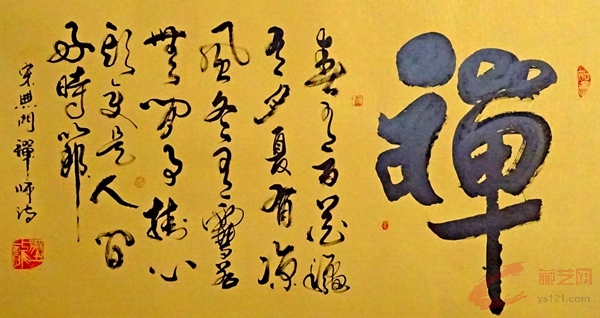 禪
春有百花穐
有月夏有凉
風冬有雪若
無閑事掛心
頭便是人間
好時節
宋無門禪師詩
ya121.com